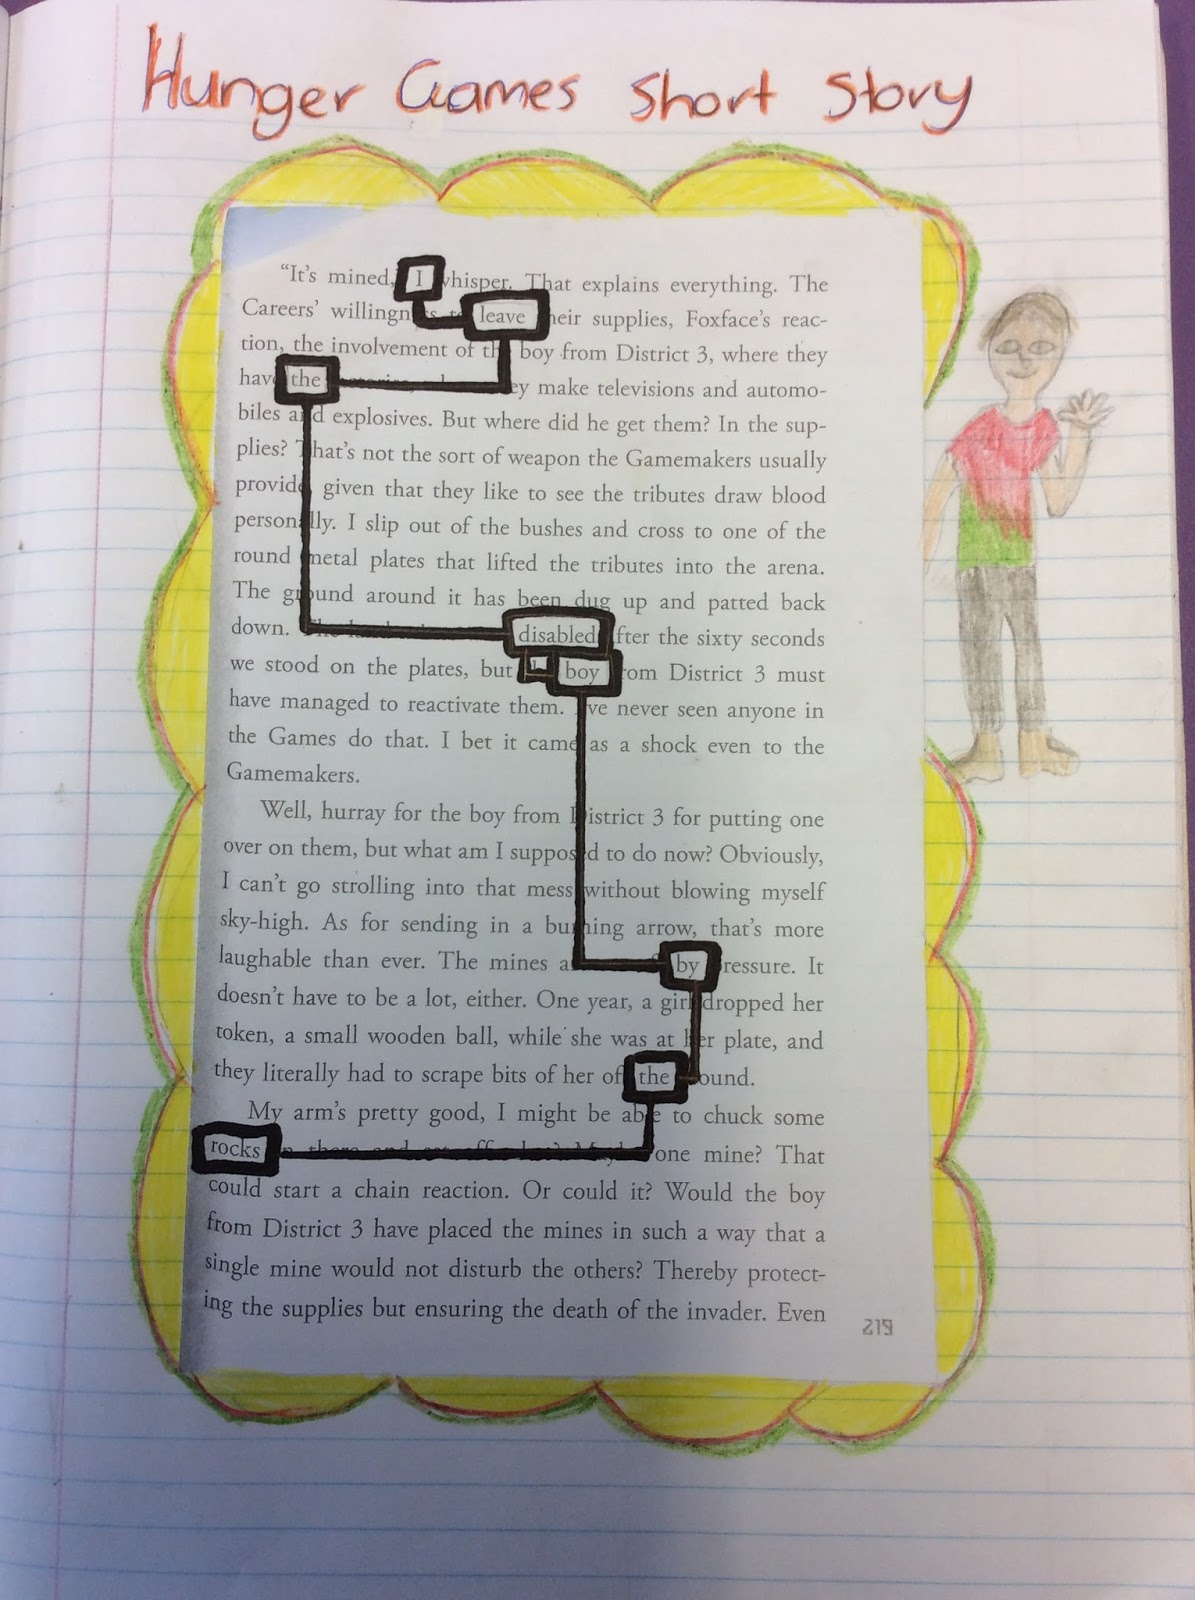 Hunger Games Short Story
"It's mined, I whisper. That explains everything. The
Careers' willingn leave heir supplies, Foxface's reac-
tion, the involvement of th boy from District 3, where they
hav the ey make televisions and automo-
biles and explosives. But where did he get them? In the sup-
plies? That's not the sort of weapon the Gamemakers usually
provide, given that they like to see the tributes draw blood
personally. I slip out of the bushes and cross to one of the
round metal plates that lifted the tributes into the arena.
The ground around it has been dug up and patted back
down. disabled fter the sixty seconds
we stood on the plates, but boy rom District 3 must
have managed to reactivate them. I've never seen anyone in
the Games do that. I bet it came as a shock even to the
Gamemakers.
Well, hurray for the boy from District 3 for putting one
over on them, but what am I supposed to do now? Obviously,
I can't go strolling into that mess without blowing myself
sky-high. As for sending in a burning arrow, that's more
laughable than ever. The mines a by ressure. It
doesn't have to be a lot, either. One year, a girl dropped her
token, a small wooden ball, while she was at her plate, and
they literally had to scrape bits of her of the ound.
My arm's pretty good, I might be able to chuck some
rocks one mine? That
could start a chain reaction. Or could it? Would the boy
from District 3 have placed the mines in such a way that a
single mine would not disturb the others? Thereby protect-
ing the supplies but ensuring the death of the invader. Even
219